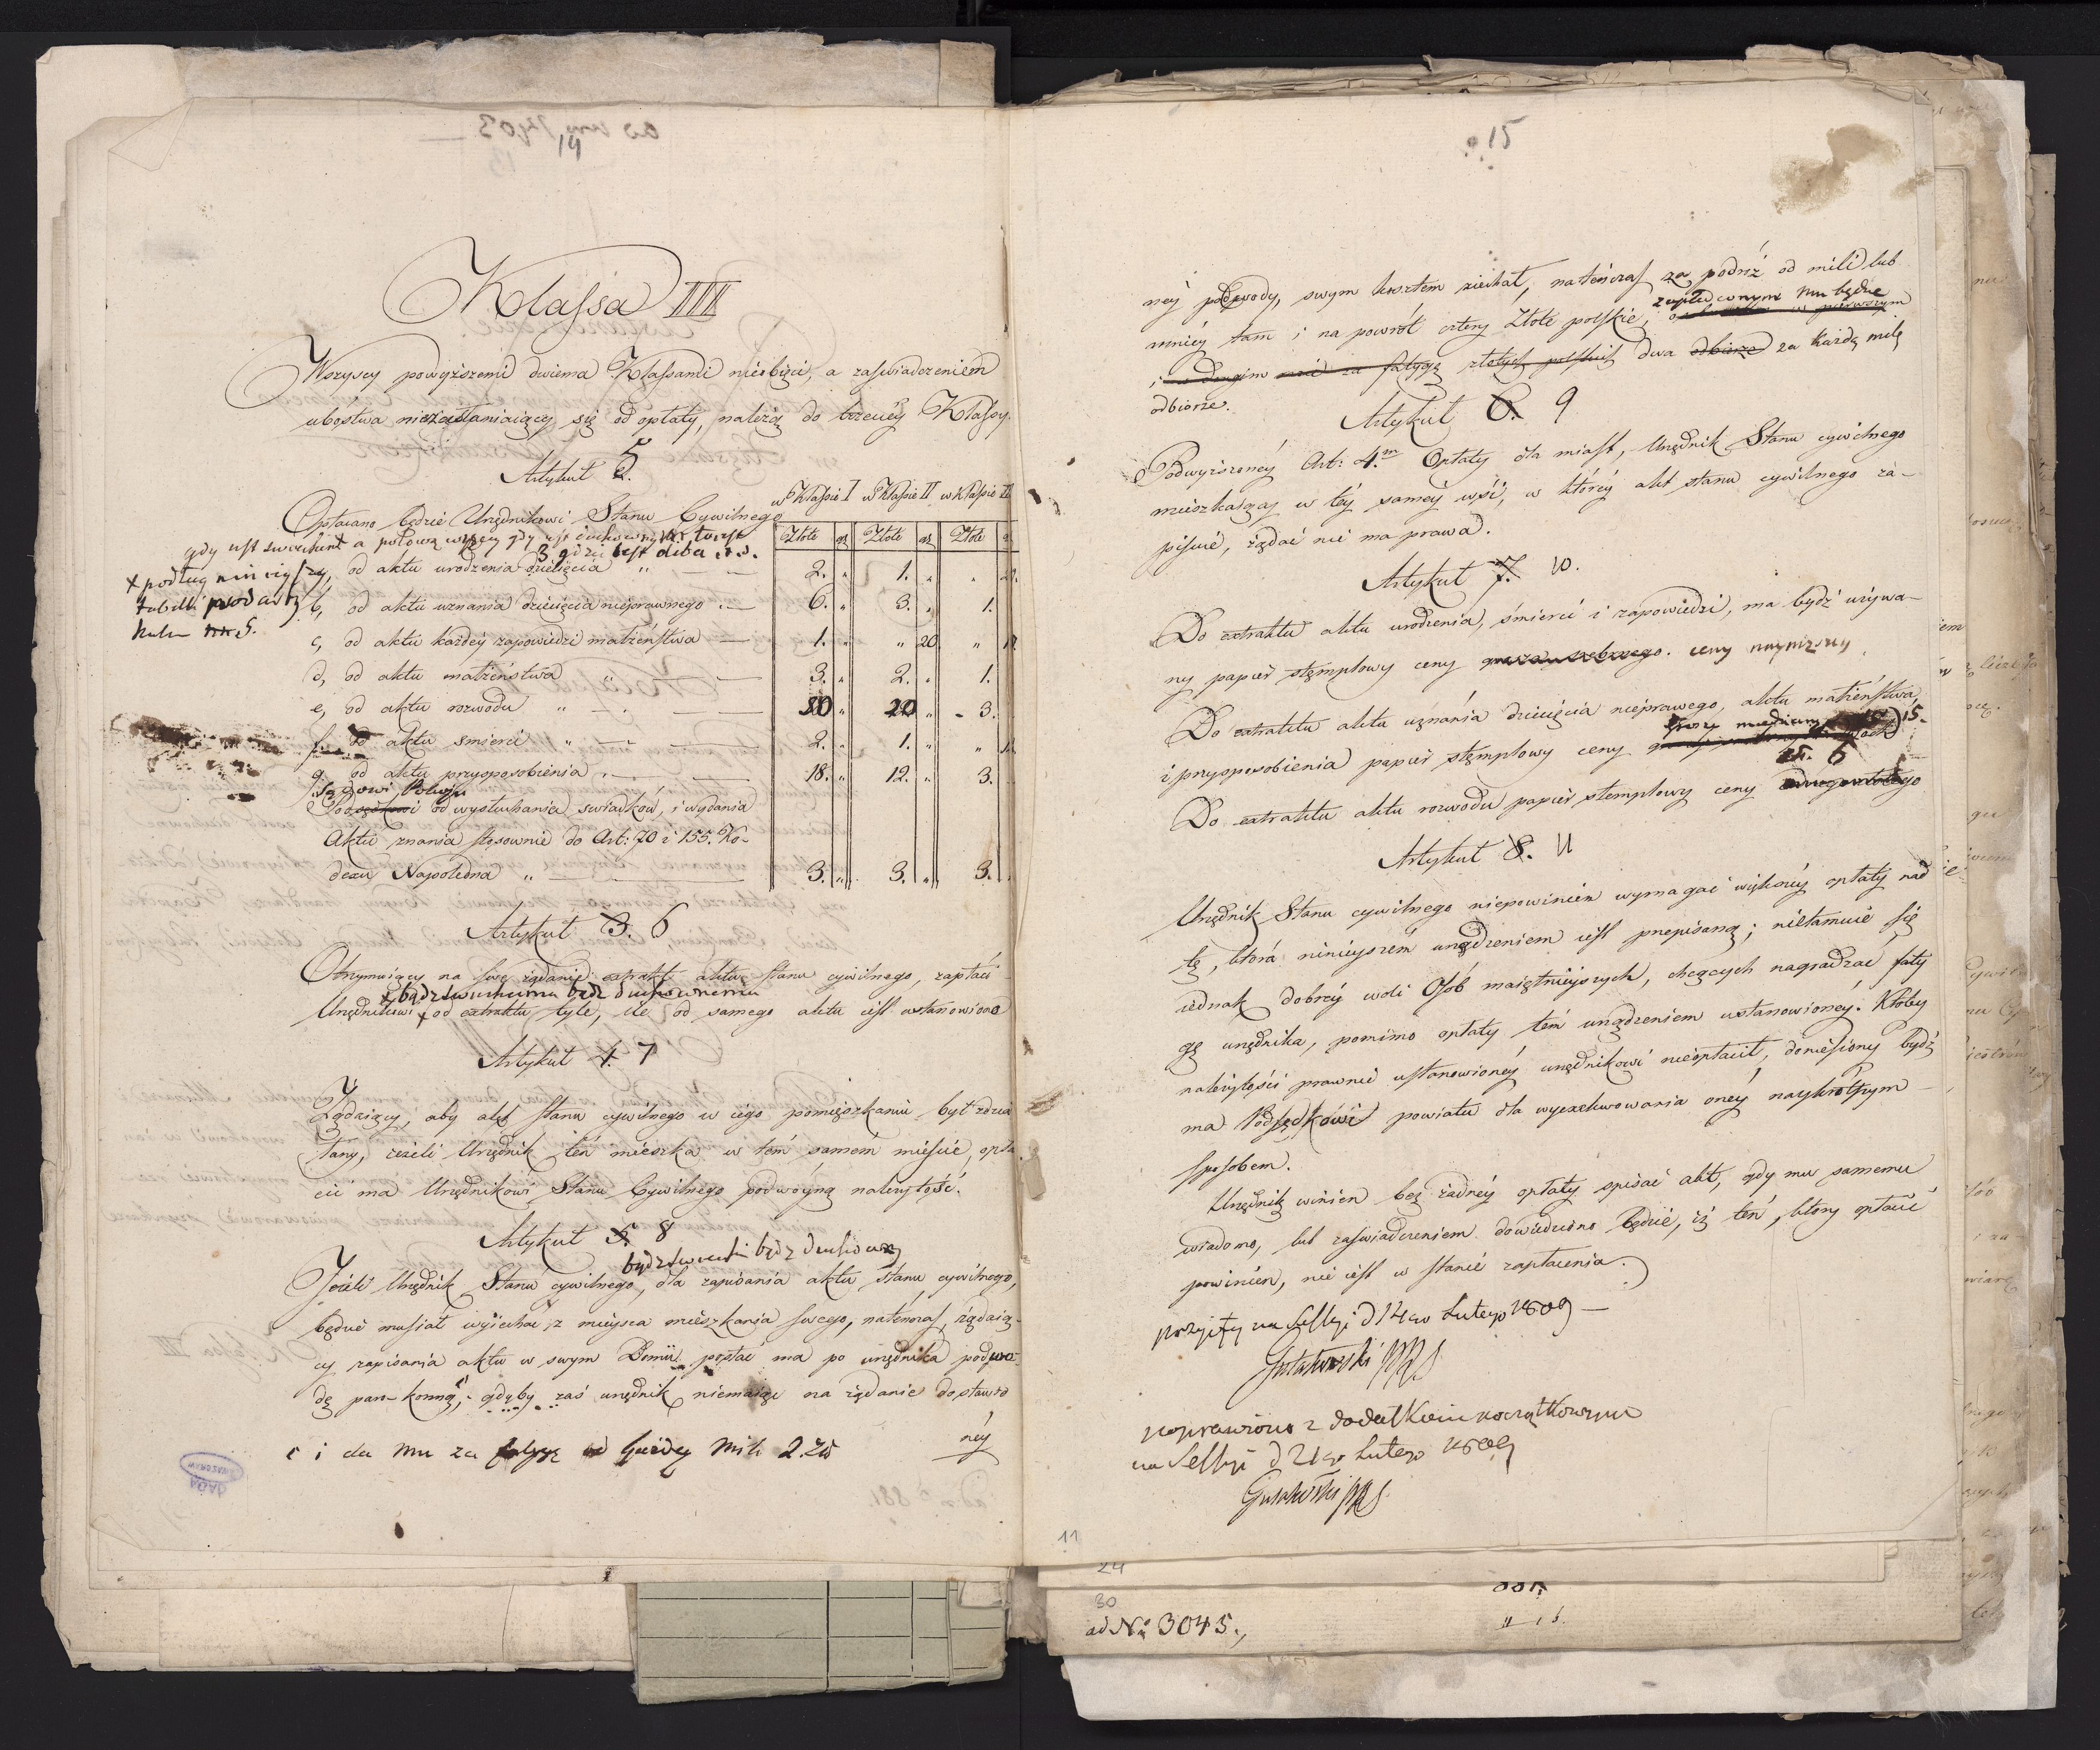 14
Klassa III
Wszyscy powyższemi dwiema Klassami nieobięci, a zaswiadczeniem
ubostwa niezasłaniaiący się od opłaty, należą do trzeciey Klassy.
Artykuł 5.
w Klassie I w Klassie II w Klassie III
Opłacano będzie Urzędnikowi Stanu Cywilnego
Złote gr Złote gr Złote g
gdy iest swieckim a połową więcey gdy iest duchownym
x podług niniey
a, od aktu urodzenia dziecięcia „ — 2. „ 1. „ „
tabelli pod art
b, od aktu uznania dziecięcia nieprawnego . — 6. „ 3. „ 1.
5.
c, od aktu każdey zapowiedzi małżeństwa — 1. „ „ 20. „
d, od aktu małżeństwa „ — 3. „ 2. „ 1.
e, od aktu rozwodu „ — „ 20 „ 3.
f. od aktu smierci „ — 2. „ 1. „ „
g. od aktu przysposobienia . — 18. „ 12. „ 3.
Sądowi Pokoju
Podsędkowi od wysłuchania swiadków, i wydania
Aktu znania stosownie do Art: 70 i 155. Ko-
dexu Napoleona „ — 3. „ 3. „ 3.
Artykuł 3. 6
Otrzymuiący na swe żądanie extrakt aktu stanu cywilnego, zapłaci
x bądź swieckiemu bądź duchownemu
Urzędnikowi x od extraktu tyle, ile od samego aktu iest ustanowiono
Artykuł 4. 7
Żądaiący, aby akt stanu cywilnego w iego pomieszkaniu był zdzia
łany, ieżeli Urzędnik ten mieszka w tem samem mieście, opła
cić ma Urzędnikowi Stanu Cywilnego podwóyną należytość.
Artykuł 5. 8
bądź swiecki bądź duchowny
Jeżeli Urzędnik Stanu cywilnego, dla zapisania aktu stanu cywilnego,
będzie musiał wyiechać z mieysca mieszkania swego, natenczas, żądaią-
cy zapisania aktu w swym Domu posłać ma po urzędnika podwo-
dę paro-konną, gdyby zaś urzędnik niemaiąc na żądanie dostawio
ney
i da mu za fatygę od każdey mili 2. zł
15
ney podwody, swym kosztem ziechał, natenczas za podróż od mili lub
zapłaconym mu będzie
mniey tam i na powrót cztery Złote polskie, w pierwszym
i w drugim za fatygę złotych polskich dwa odbierze za każdą milę
odbierze.
Artykuł 6. 9
Podwyższoney Art: 4.m Opłaty dla miast, Urzędnik Stanu cywilnego
mieszkaiący w tey samey wsi, w którey akt stanu cywilnego za-
pisuie, żądać nie ma prawa.
Artykuł 7. 10.
Do extraktu aktu urodzenia, śmierci i zapowiedzi, ma bydź używa-
ny papier stęmplowy ceny ceny nayniższey
Do extraktu aktu uznania dziecięcia nieprawego, aktu małżeństwa
15.
i przysposobienia papier stęmplowy ceny
6
Do extraktu aktu rozwodu papier stemplowy ceny
Artykuł 8. 11
Urzędnik Stanu cywilnego niepowinien wymagać większey opłaty nad
tę, która ninieyszem urządzeniem iest przepisaną; nietamuie się
iednak dobrey woli Osób maiętnieyszych, chcących nagradzać faty
gę urzędnika, pomimo opłaty tem urządzeniem ustanowioney. Któby
należytości prawnie ustanowioney urzędnikowi nieopłacił, doniesiony bydź
ma Podsędkowi powiatu dla wyexekwowania oney naykrótszym
sposobem.
Urzędnik winien bez żadney opłaty spisać akt, gdy mu samemu
wiadomo, lub zaswiadczeniem dowiedziono będzie, iż ten, który opłacić
powinien, nie iest w stanie zapłacenia.
przyięty na Sessyi d 14go Lutego 1809 —
poprawiono z dodatkiem początkowym
na Sessyi d 21go Lutego 1809
11
24
30
ad No 3045.,